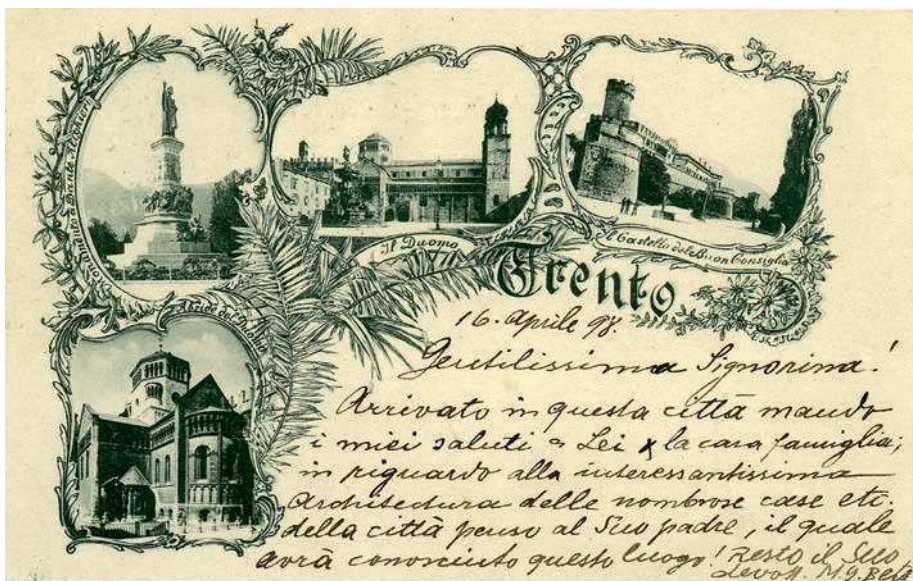 Monumento a Dante Alighieri
Il Duomo
Il Castello del Buon Consiglio
Abside del Duomo
Trento.
16. Aprile 98.
Gentilissima Signorina!
Arrivato in questa città mando
i miei saluti a Lei x la cara famiglia;
in riguardo alla interessantissima
Architectura delle nombrose case etc
della città penso al Suo padre, il quale
avrà conosciuto questo luogo! resto il Suo
Devott. M. G.